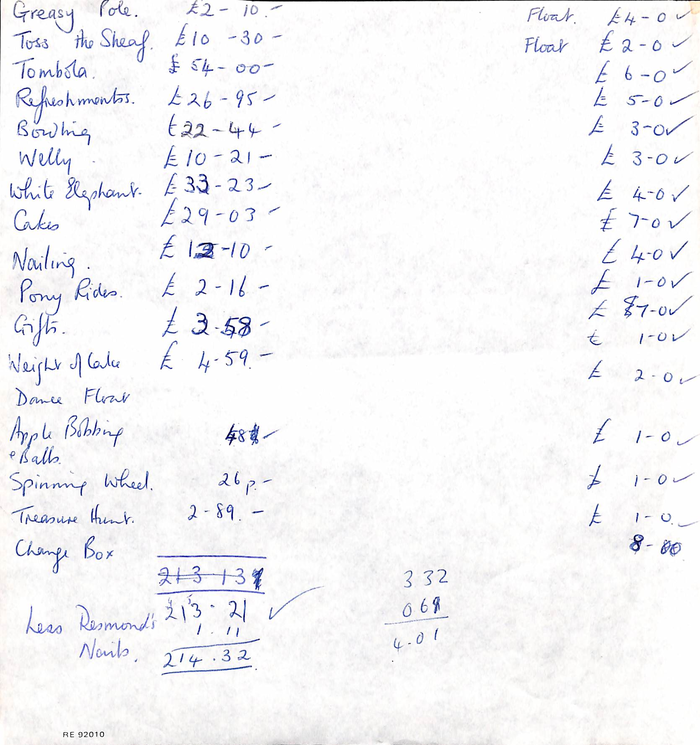 Greasy Pole. £2-10.- Float. £4-0 ✓
Toss the Sheaf. £10-30- Float £2-0 ✓
Tombola. £54-00- £6-0 ✓
Refreshments. £26-95- £5-0 ✓
Bowling £22-44- £3-0 ✓
Welly. £10-21- £3-0 ✓
White Elephant. £33-23- £4-0 ✓
Cakes £29-03- £7-0 ✓
Nailing. -10- £4-0 ✓
Pony Rides. £2-16- £1-0 ✓
Gifts. £3-58- 7-0 ✓
£1-0 ✓
Weight of Cake £4-59.- £2-0 ✓
Dance Float
Apple Bobbing £1-0 ✓
& Balls.
Spinning Wheel. 26p.- £1-0 ✓
Treasure Hunt. 2-89.- £1-0 ✓
Change Box 8-
332
213-21 ✓ 06
Less Desmond's 1.11 4.01
Nails. 214.32
RE 92010